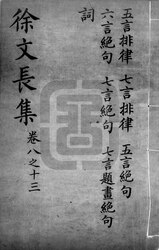 五言排律 七言排律 五言絕句
六言絕句 七言絕句 七言題畫絕句
詞
徐文長集 卷八之十三